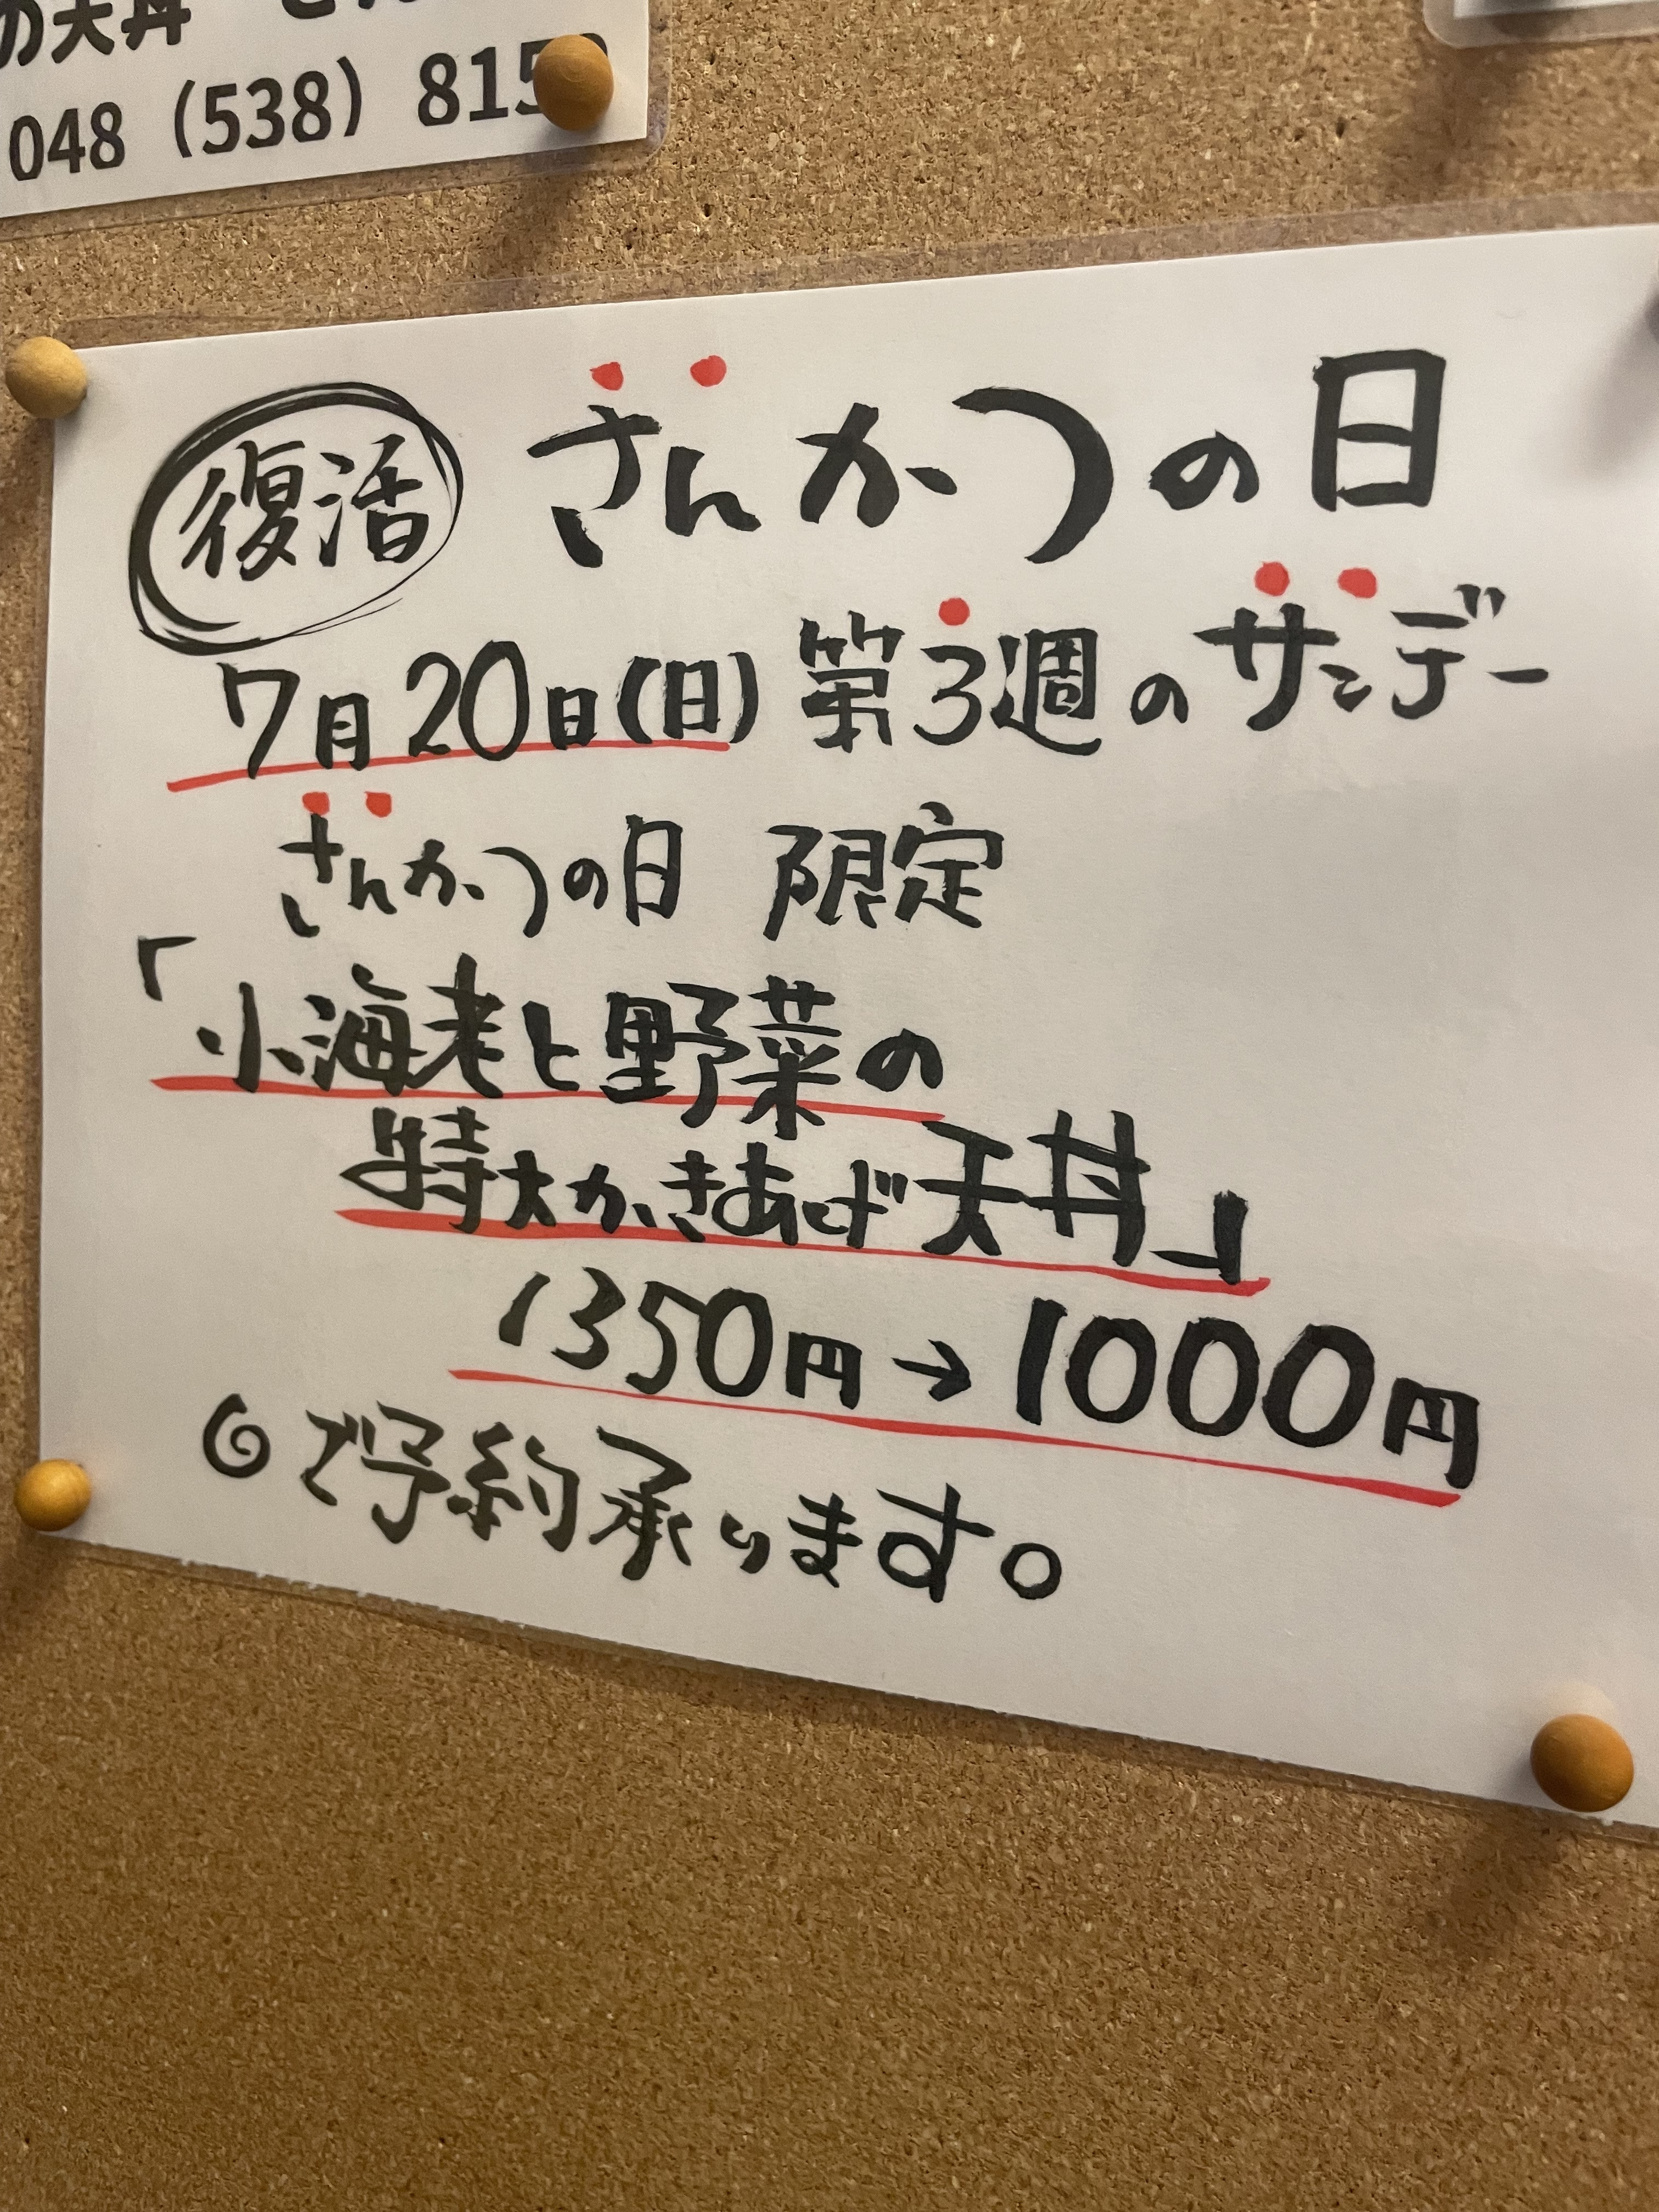 の天丼
048（538）815
復活 さんかつの日
7月20日(日) 第3週のサンデー
さんかつの日 限定
「小海老と野菜の
特大かきあげ天丼」
1350円→1000円
◎ご予約承ります。